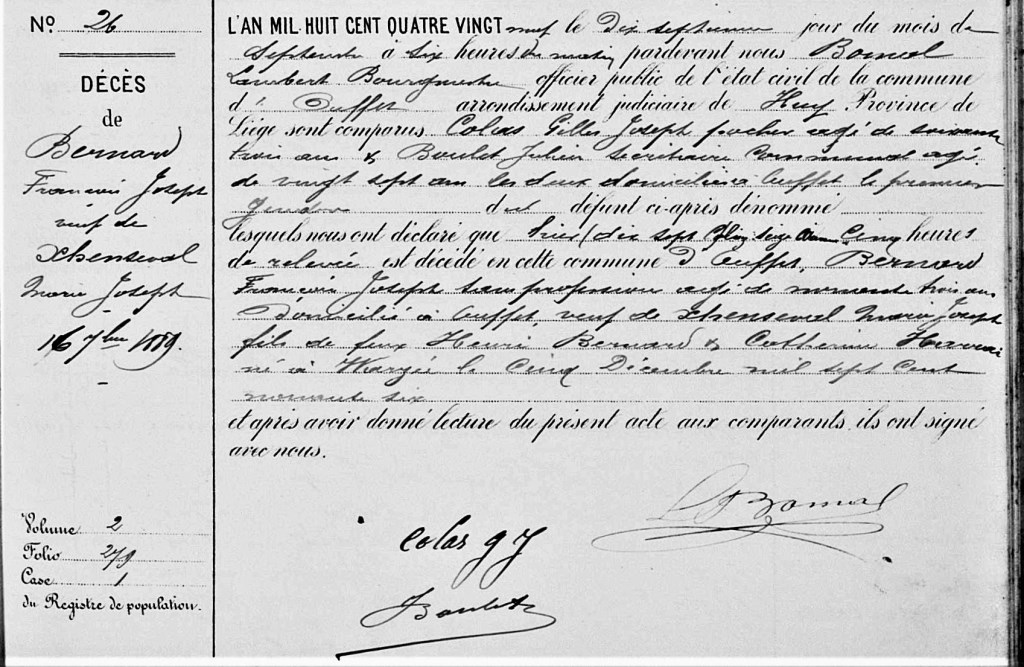 No. 26
DÉCÈS
de
Bernard
François Joseph
veuf de
Xhenseval
Marie Joseph
16 7bre 1889.
Volume 2
Folio 279
Case 1
du Registre de population.
L'AN MIL HUIT CENT QUATRE VINGT neuf le Dix septième jour du mois de
Septembre à Six heures du matin pardevant nous Bomal
Lambert Bourgmestre officier public de l'état civil de la commune
d' Ouffet arrondissement judiciaire de Huy Province de
Liége sont comparus. Colas Gilles Joseph porcher agé de soixante
trois ans & Boulet Julien Secrétaire Communal agé
de vingt sept ans les deux domiciliés à Ouffet, le premier
gendre du défunt ci-après dénommé
lesquels nous ont déclaré que hier cinq heures
de relevée est décédé en cette commune d' Ouffet, Bernard
François Joseph sans profession agé de nonante trois ans
Domicilié à Ouffet, veuf de Xhenseval Marie Joseph
fils de feux Henri Bernard & Catherine
né à Warzée le Cinq Décembre mil sept Cent
nonante six
et après avoir donné lecture du présent acte aux comparants, ils ont signé
avec nous.
L Bomal
Colas g J
Boulet